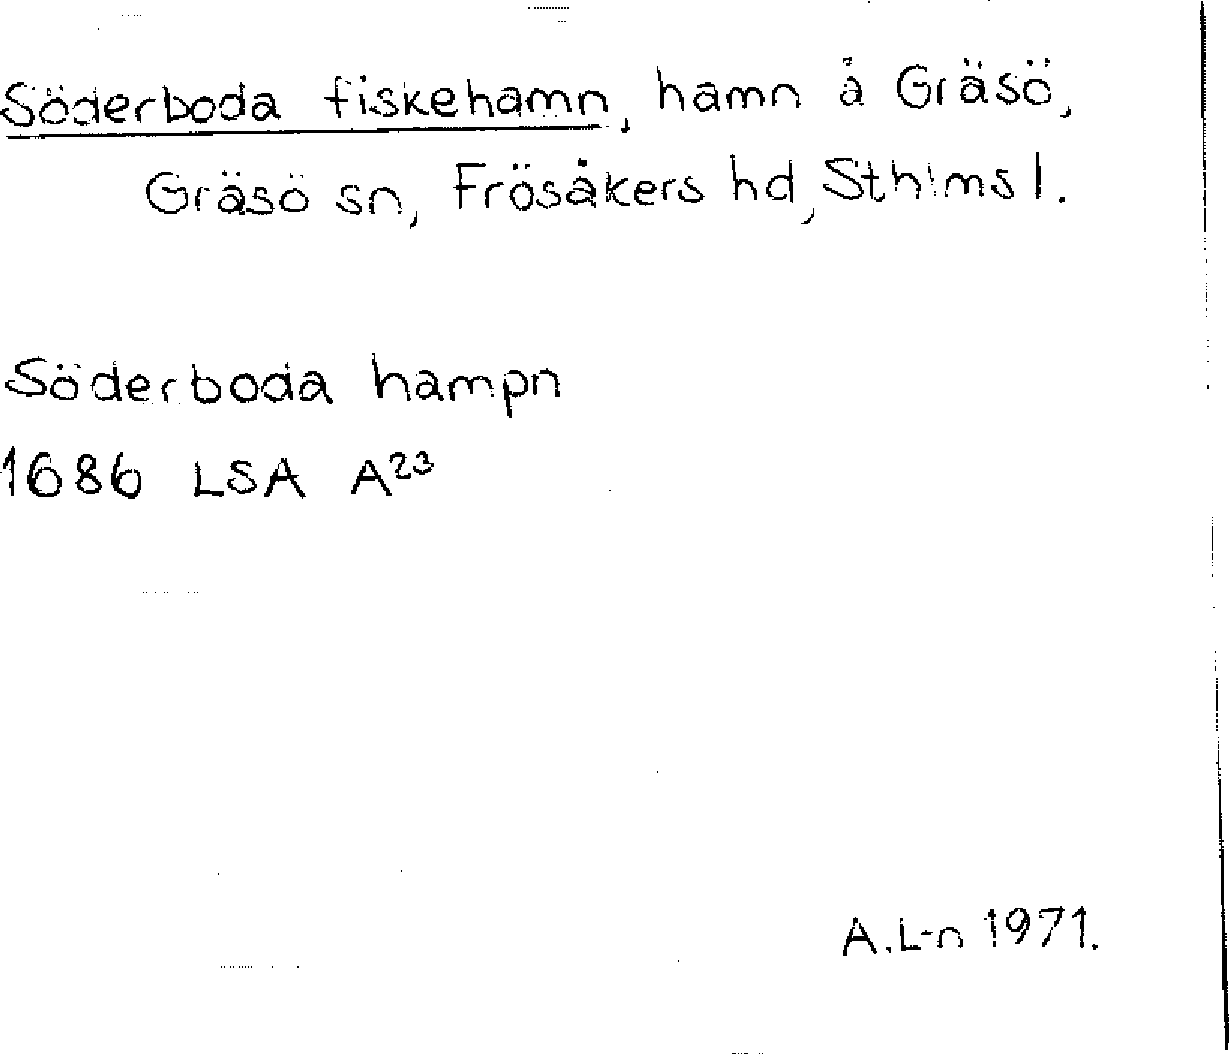 Söderboda fiskehamn, hamn å Gräsö,
Gräsö sn, Frösåkers hd, Sthlms l.
Söderboda hampn
1686 LSA A²³
A.L-n 1971.